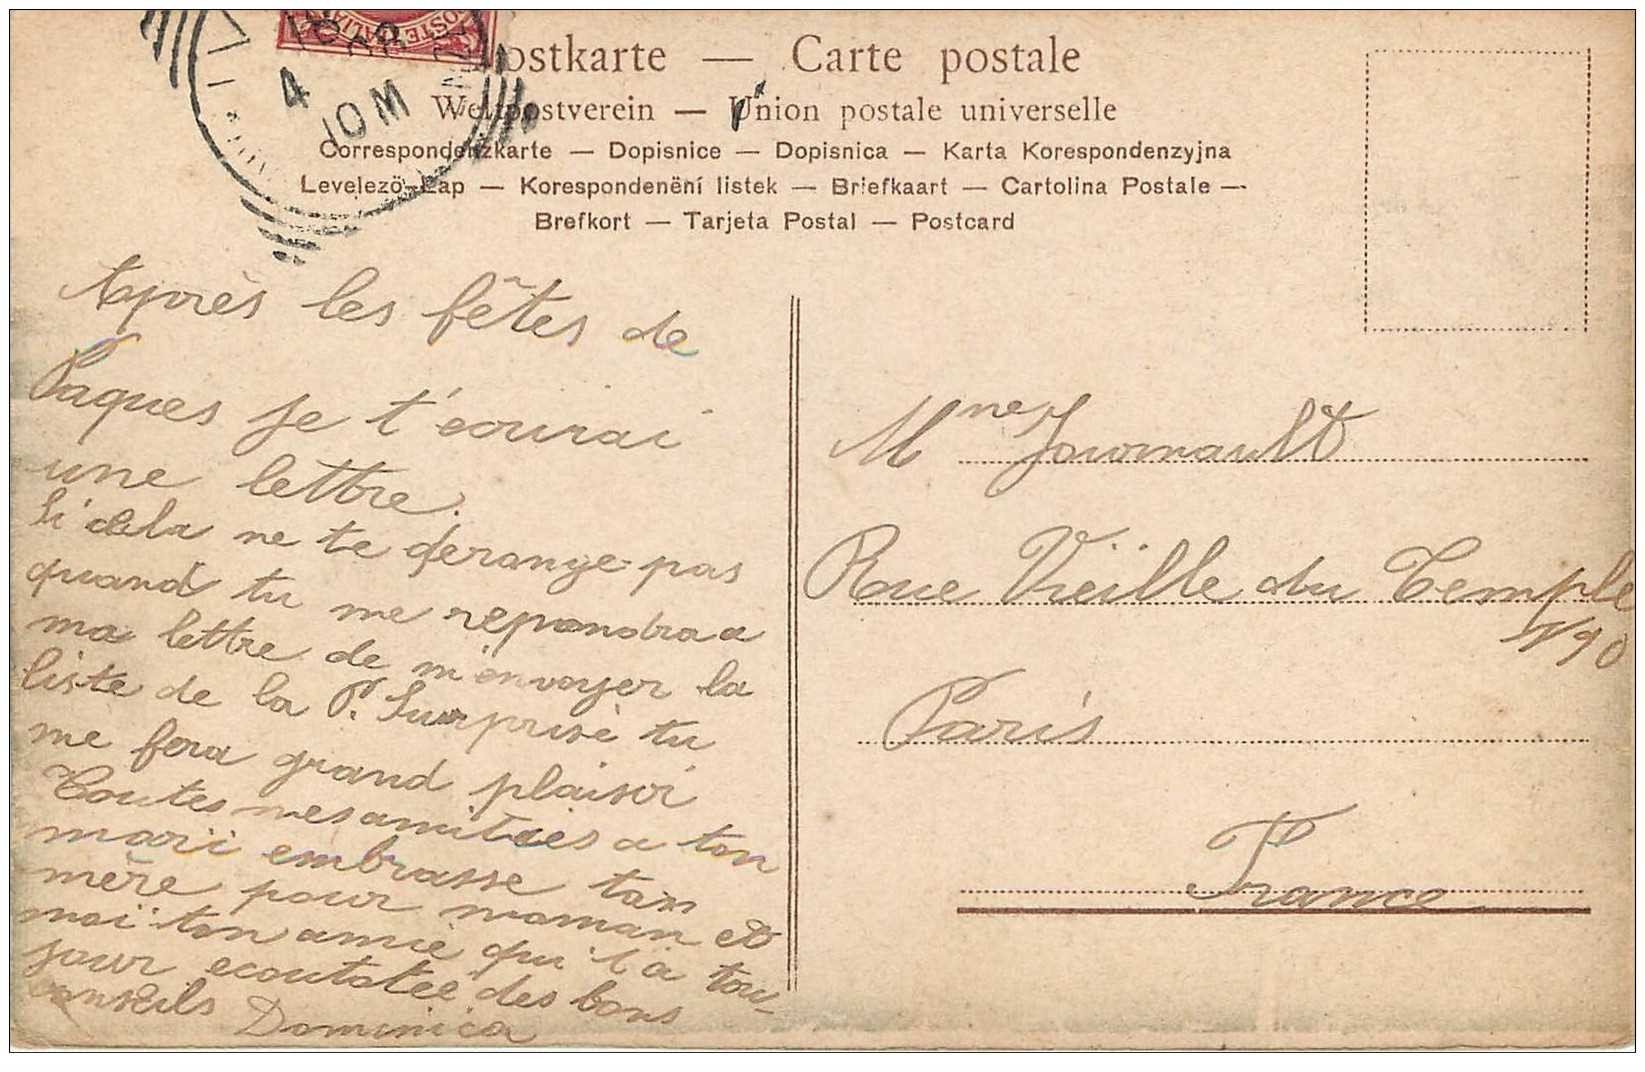 Postkarte — Carte postale
Weltpostverein — Union postale universelle
Correspondenzkarte — Dopisnice — Dopisnica — Karta Korespondenzyjna
Levelező-Lap — Korespondenční listek — Briefkaart — Cartolina Postale —
Brefkort — Tarjeta Postal — Postcard
4
10 M
Après les fêtes de
Paques je t'ecurai
une lettre.
Si cela ne te derange pas
quand tu me repondraa
ma lettre de m'envoyer la
liste de la P. Surprise tu
me fera grand plaisir
Toutes mes amitiées a ton
mari embrasse ton
mère pour maman et
moi ton amie qui t'a tou-
jour ecoutatée des bons
conseils Dominica
Mme Journault
Rue Vieille du Temple
90
Paris
France